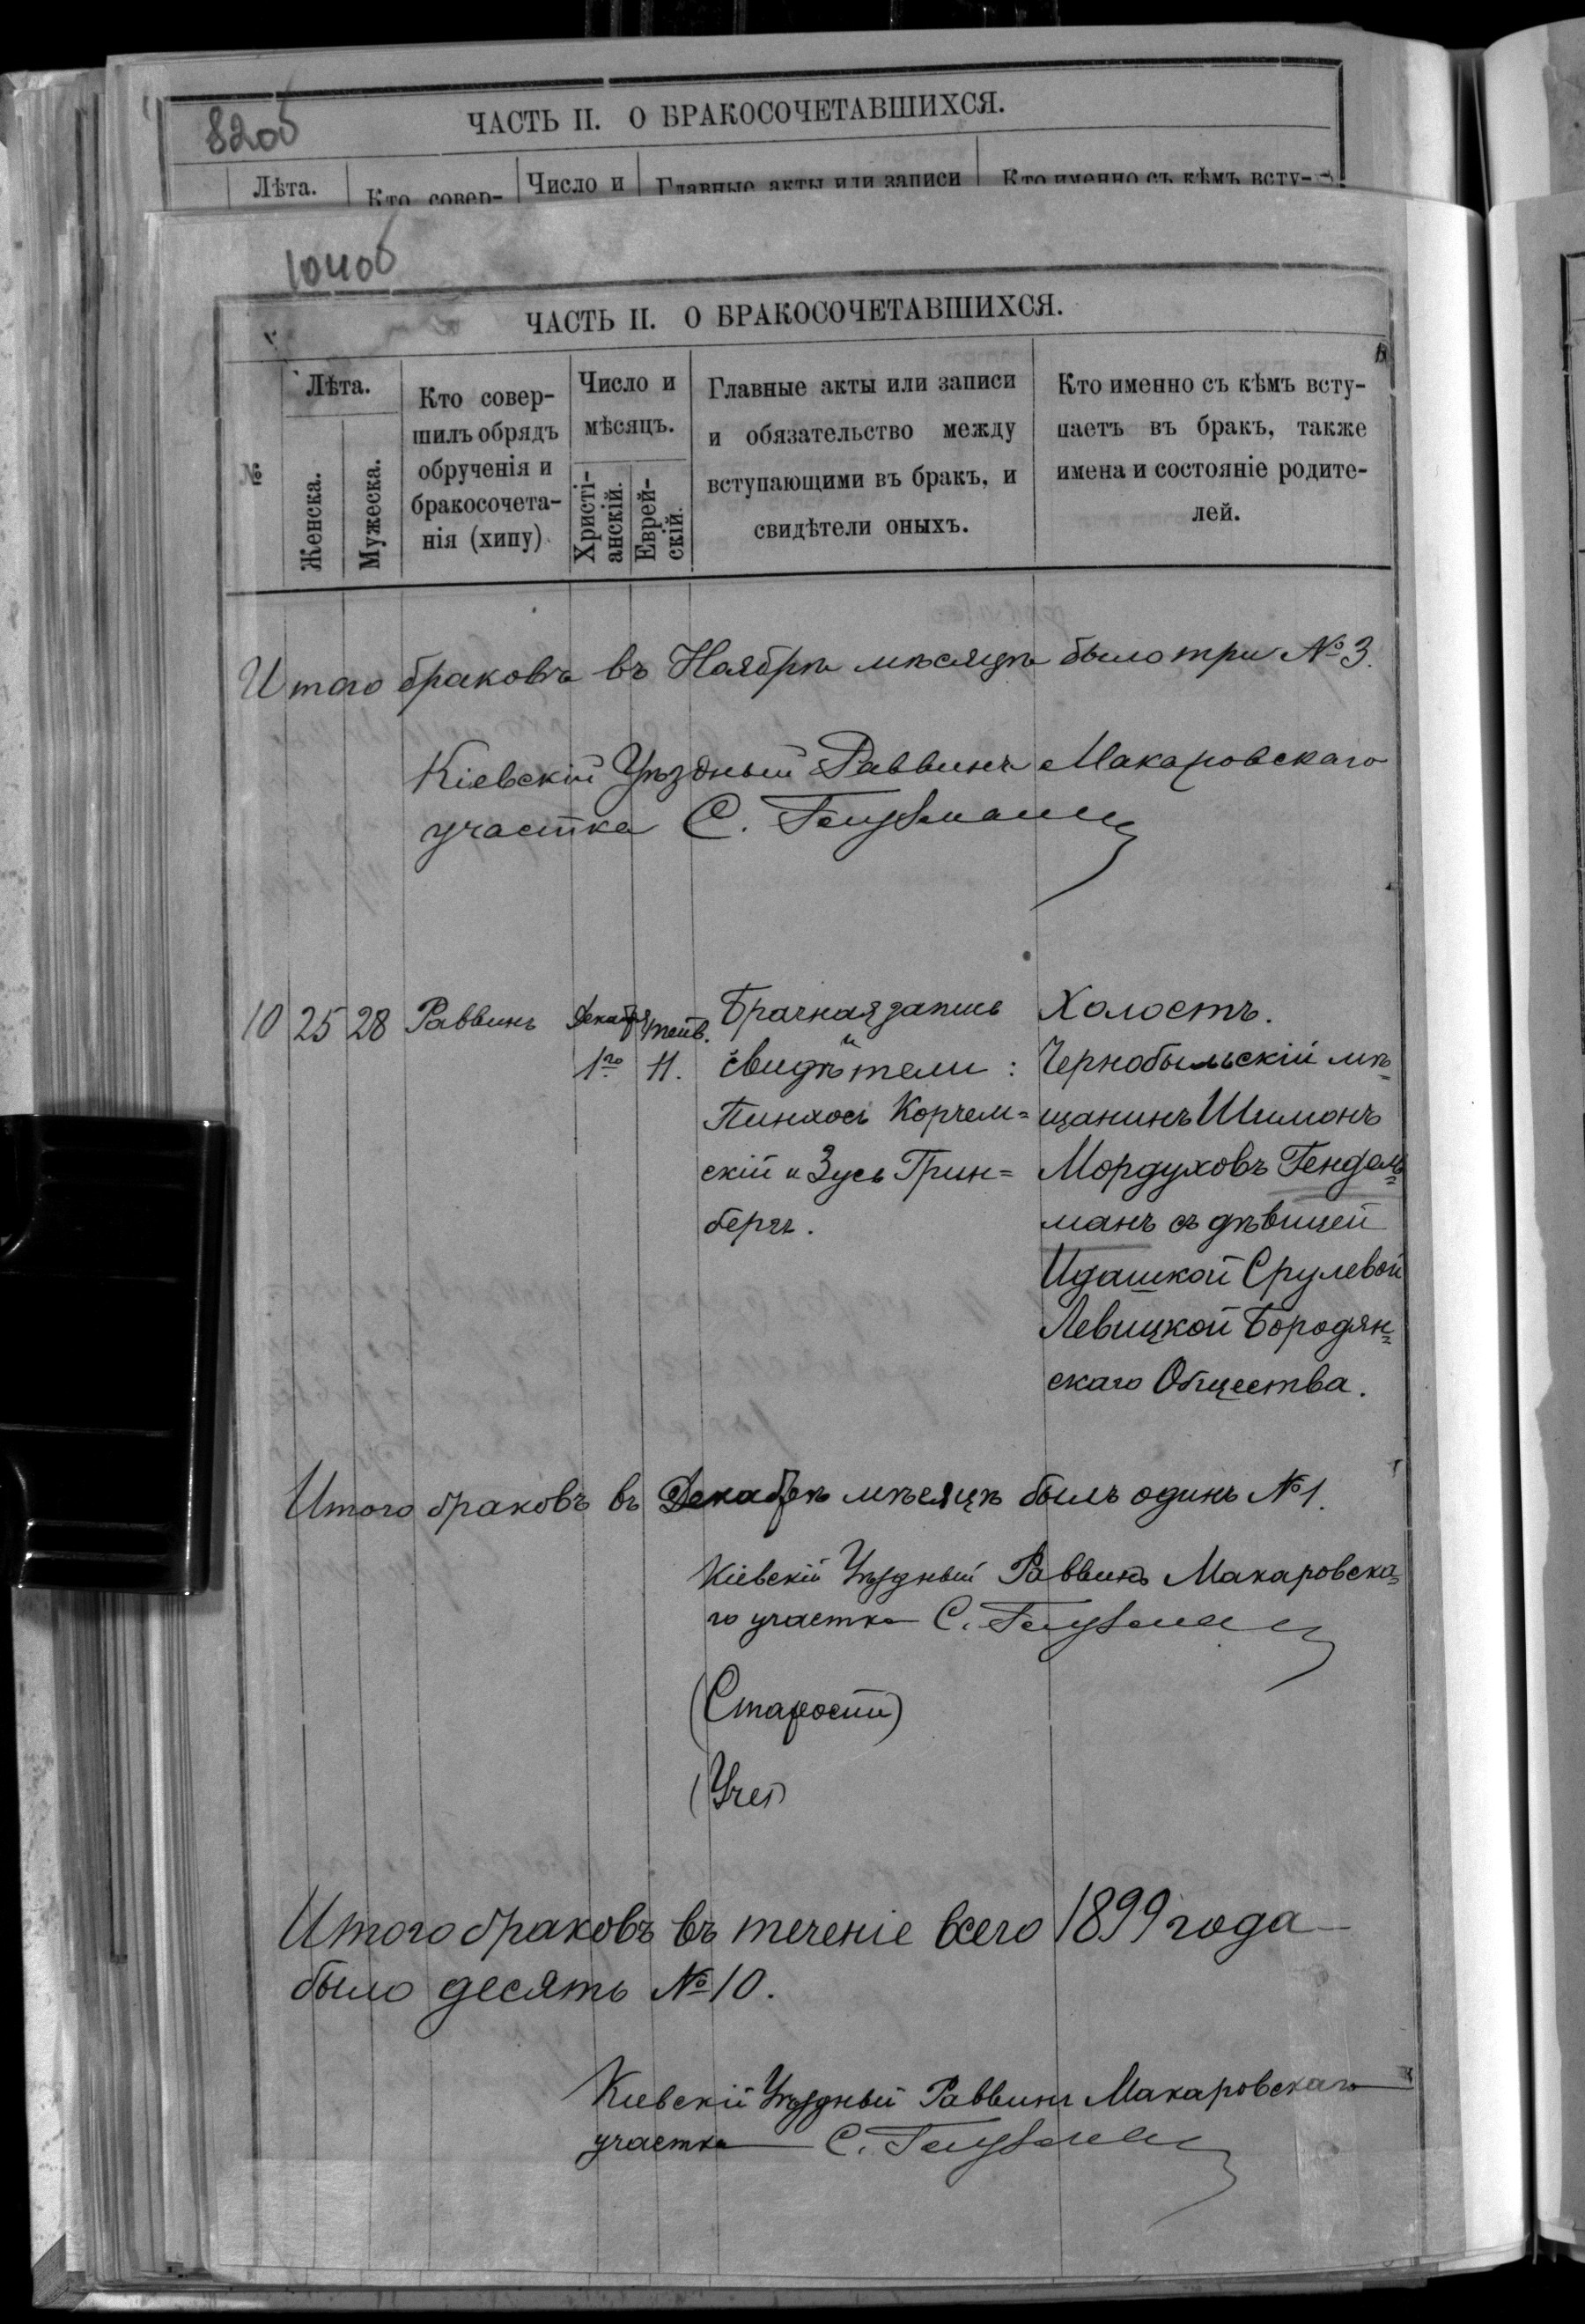 820б
ЧАСТЬ II. О БРАКОСОЧЕТАВШИХСЯ.
Лѣта.
Кто совер-
Число и
Главные акты или записи
Кто именно съ кѣмъ всту-
104об
ЧАСТЬ II. О БРАКОСОЧЕТАВШИХСЯ.
№
Лѣта.
Женска.
Мужеска.
Кто совер-
шилъ обрядъ
обрученія и
бракосочета-
нія (хипу)
Число и
мѣсяцъ.
Христі-
анскій.
Еврей-
скій.
Главные акты или записи
и обязательство между
вступающими въ бракъ, и
свидѣтели оныхъ.
Кто именно съ кѣмъ всту-
паетъ въ бракъ, также
имена и состояніе родите-
лей.
Итого браковъ въ Ноябрѣ мѣсяцѣ было три №3.
Кіевскій Уѣздный Раввинъ Макаровскаго
участка С.
10 25 28 Раввинъ
Декабря
1го
Тейв.
11.
Брачная запись
и
свидѣтели:
Пинхосъ Корчем=
скій и Зусь Грин=
бергъ.
Холостъ.
Чернобыльскій мѣ=
щанинъ Шимонъ
Мордуховъ Гендель=
манъ съ дѣвицей
Идашкой Срулевой
Левицкой Бородян=
скаго Общества.
Итого браковъ въ Декабрѣ мѣсяцѣ былъ одинъ №1.
Кіевскій Уѣздный Раввинъ Макаровска=
го участка С.
(Старости)
(Уч
Итого браковъ въ теченіе всего 1899 года
было десять №10.
Кіевскій Уѣздный Раввинъ Макаровскаго
участка С.